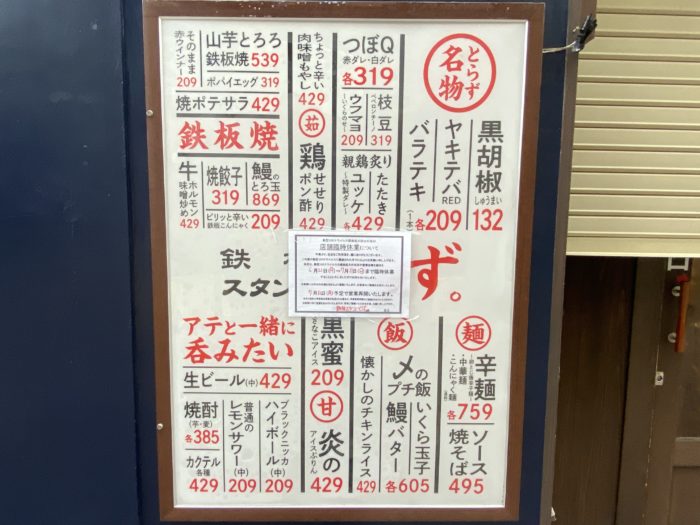 とらず
名物
黒胡椒
しゅうまい
132
ヤキテバ
RED
バラテキ
(1本)
各209
つぼQ
赤ダレ・白ダレ
各319
枝豆
ペペロンチーノ
319
ウフマヨ
〜いくらのせ〜
209
親鶏炙り
たたき
ユッケ
〜特製ダレ〜
各429
ちょっと辛い
肉味噌もやし
429
茹
鶏せせり
ポン酢
429
山芋とろろ
鉄板焼539
ポパイエッグ 319
そのまま
赤ウインナー
209
焼ポテサラ 429
鉄板焼
鰻の
とろ玉
869
焼餃子
319
牛ホルモン
味噌炒め
429
ピリッと辛い
鉄板こんにゃく 209
鉄
スタン
ず。
店舗臨時休業について
麺
辛麺
・中華麺
・こんにゃく麺
各759
ソース
焼そば
495
飯
〆の飯
プチ
いくら玉子
鰻バター
各605
懐かしのチキンライス
429
黒蜜
きなこアイス
209
甘
炎の
アイスぷりん
429
アテと一緒に
呑みたい
生ビール(中)429
ブラックニッカ
ハイボール(中)
209
普通の
レモンサワー(中)
209
焼酎
(芋・麦)
各385
カクテル
各種
429